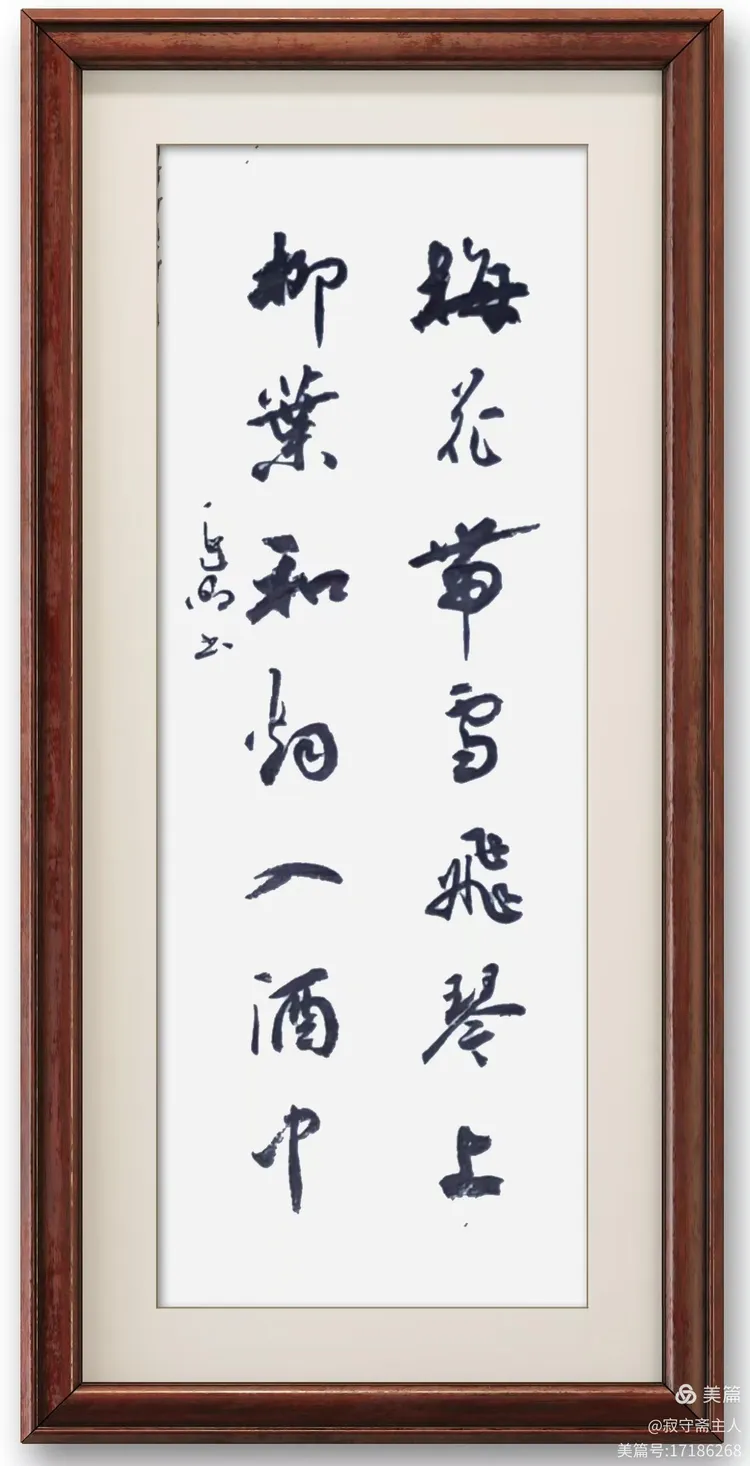 梅花带雪飛琴上
柳葉和烟入酒中
書
美篇
@寂守斋主人
美篇号:17186268